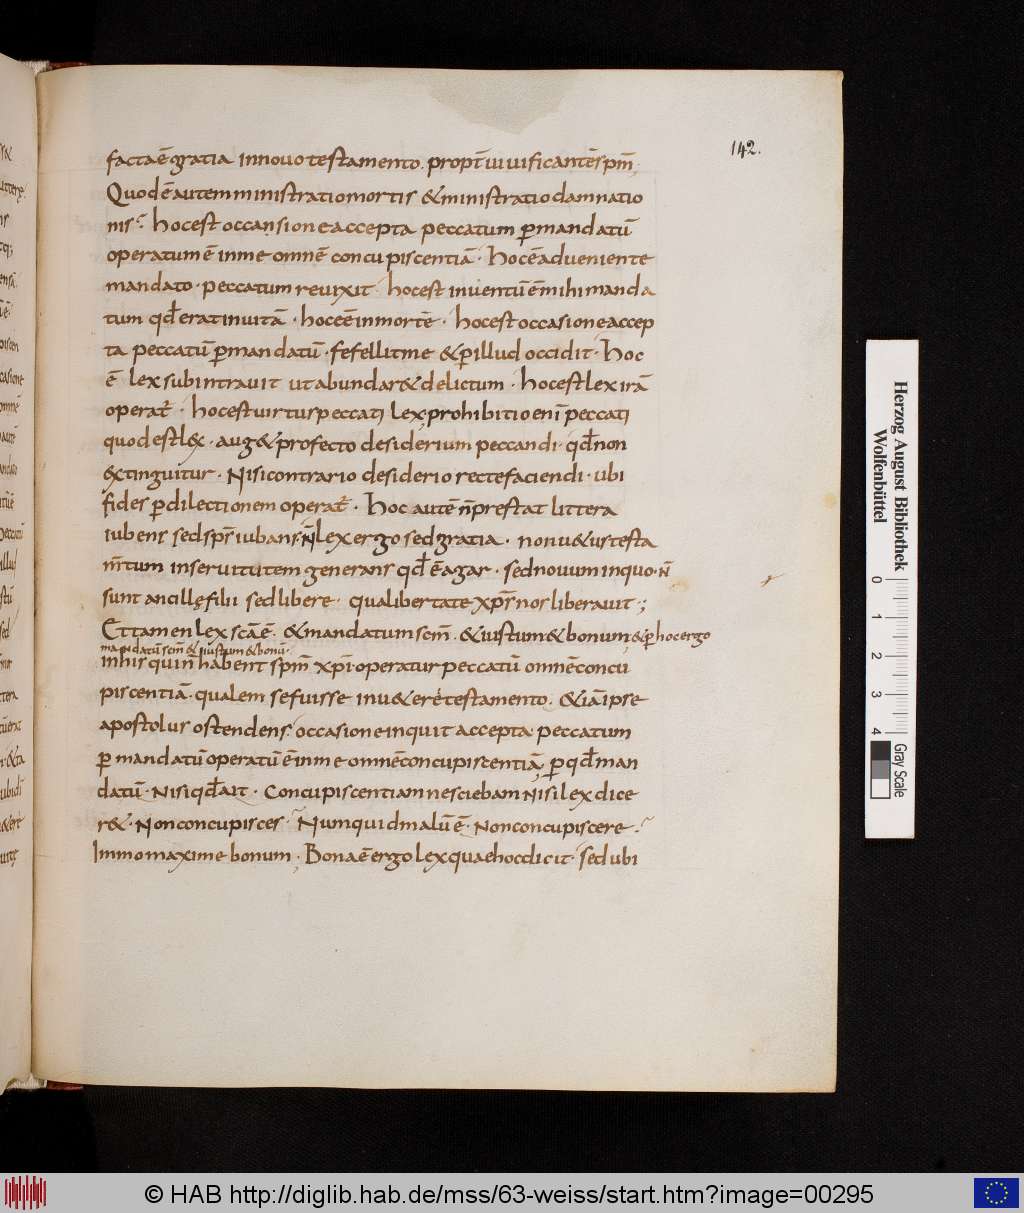 142.
facta ē gratia in nouo testamento. propt̄ uiuificantē spm̄;
Quod ē autem ministratio mortis & ministratio damnatio
nis? hoc est occansione accepta peccatum p̱ mandatū
operatum ē in me omnē concupiscentiā. hoc ē adueniente
mandato. peccatum reuixit. hoc est inuentū ē mihi manda
tum qd̄ erat in uitā. hoc eē in mortē. hoc est occasione accep
ta peccatū p̱ mandatū. fefellit me & p̱ illud occidit. hoc
ē lex subintrauit ut abundar& delictum. hoc est lex irā
operat̄. hoc est uirtus peccati lex; prohibitio enī peccati
quod est l&x. aug& profecto desiderium peccandi. qd̄ non
&xtinguitur. Nisi contrario desiderio recte faciendi. ubi
fides p̱ dilectionem operat̄. hoc autē n̄ prestat littera
iubens sed sps̄ iubans. n̄ lex ergo sed gratia. non u&us testa
m̄tum in seruitutem generans qd̄ ē agar. sed nouum in quo. n̄
sunt ancillę filii sed libere. qua libertate xps̄ nos liberauit;
Et tamen lex scā ē. & mandatum scm̄. & iustum & bonum, & p̱ hoc ergo
mandatū scm̄ & iustum & bonū.
in his qui n̄ habent spm̄ xpi operatur peccatū omnē concu
piscentiā. qualem se fuisse in u&ere testamento. & iā ipse
apostolus ostendens. occasione inquit accepta peccatum
p̱ mandatū operatū ē in me omnē concupiscentiā, p̱ qd̄ man
datū. Nisi qd̄ ait. Concupiscentiam nesciebam nisi lex dice
r&. Non concupisces. Numquid malū ē. Non concupiscere?
Immo maxime bonum. Bona ē ergo lex quae hoc dicit. sed ubi
Herzog August Bibliothek
Wolfenbüttel
0 1 2 3 4 Gray Scale
© HAB http://diglib.hab.de/mss/63-weiss/start.htm?image=00295